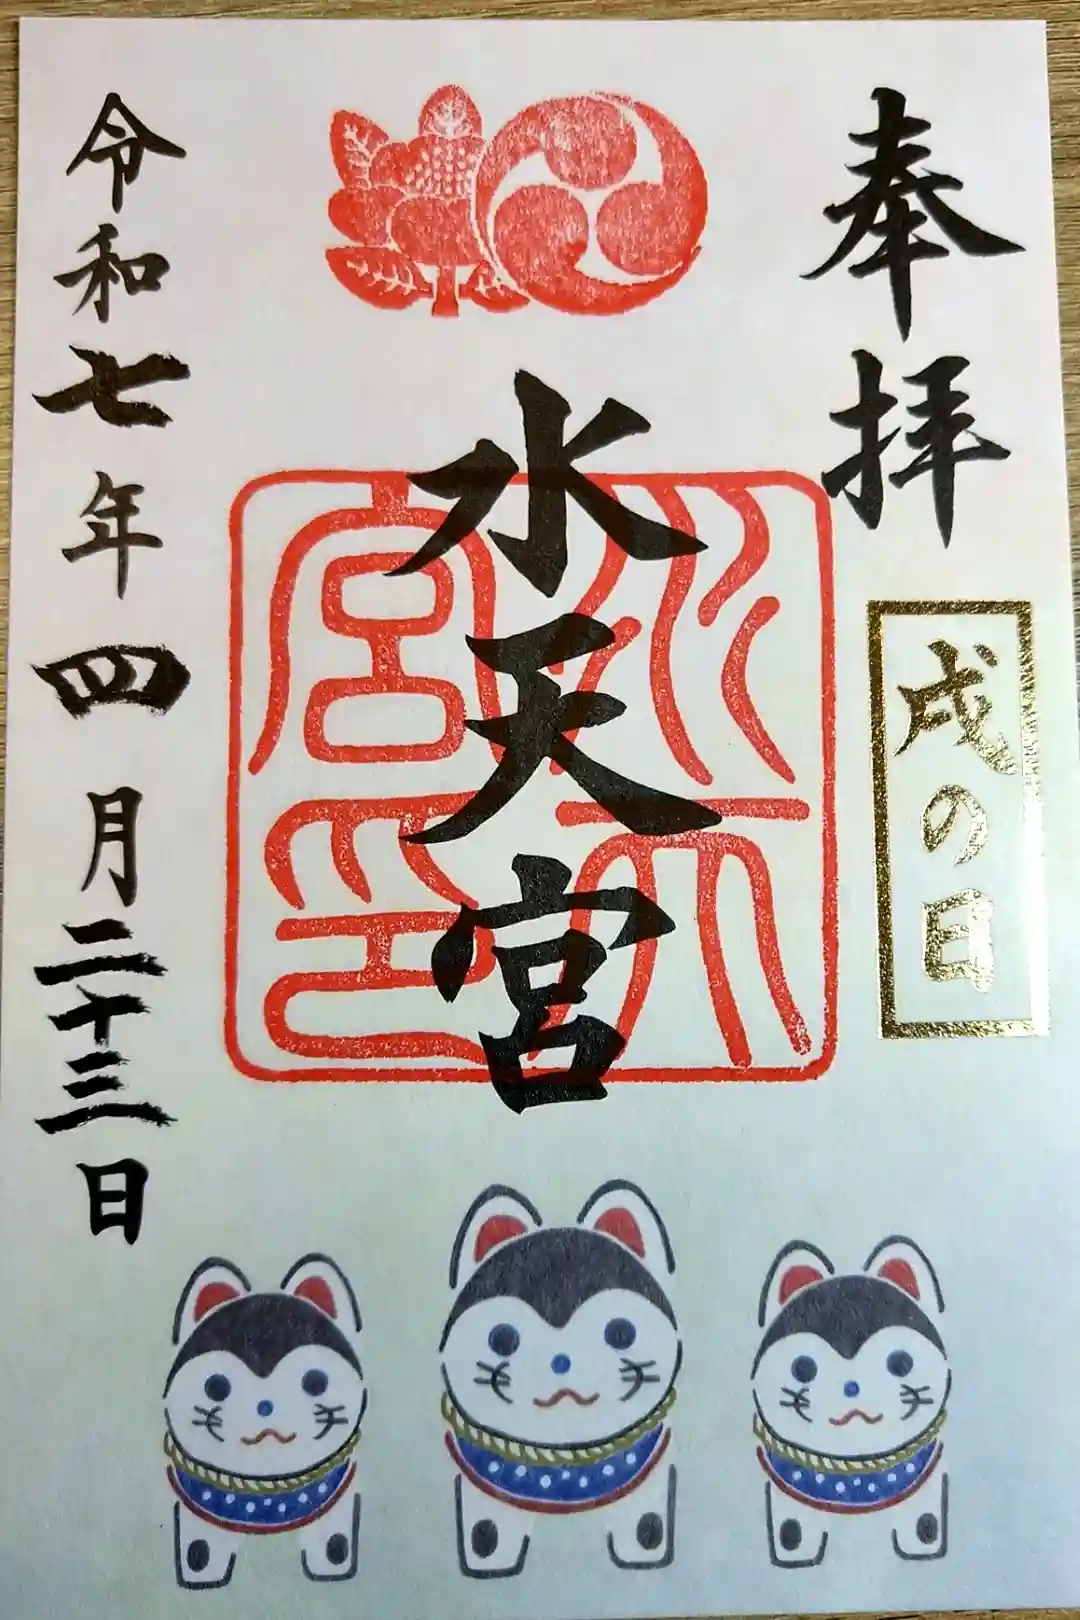 奉拝
戌の日
水天宮
水天宮印
令和七年四月二十三日